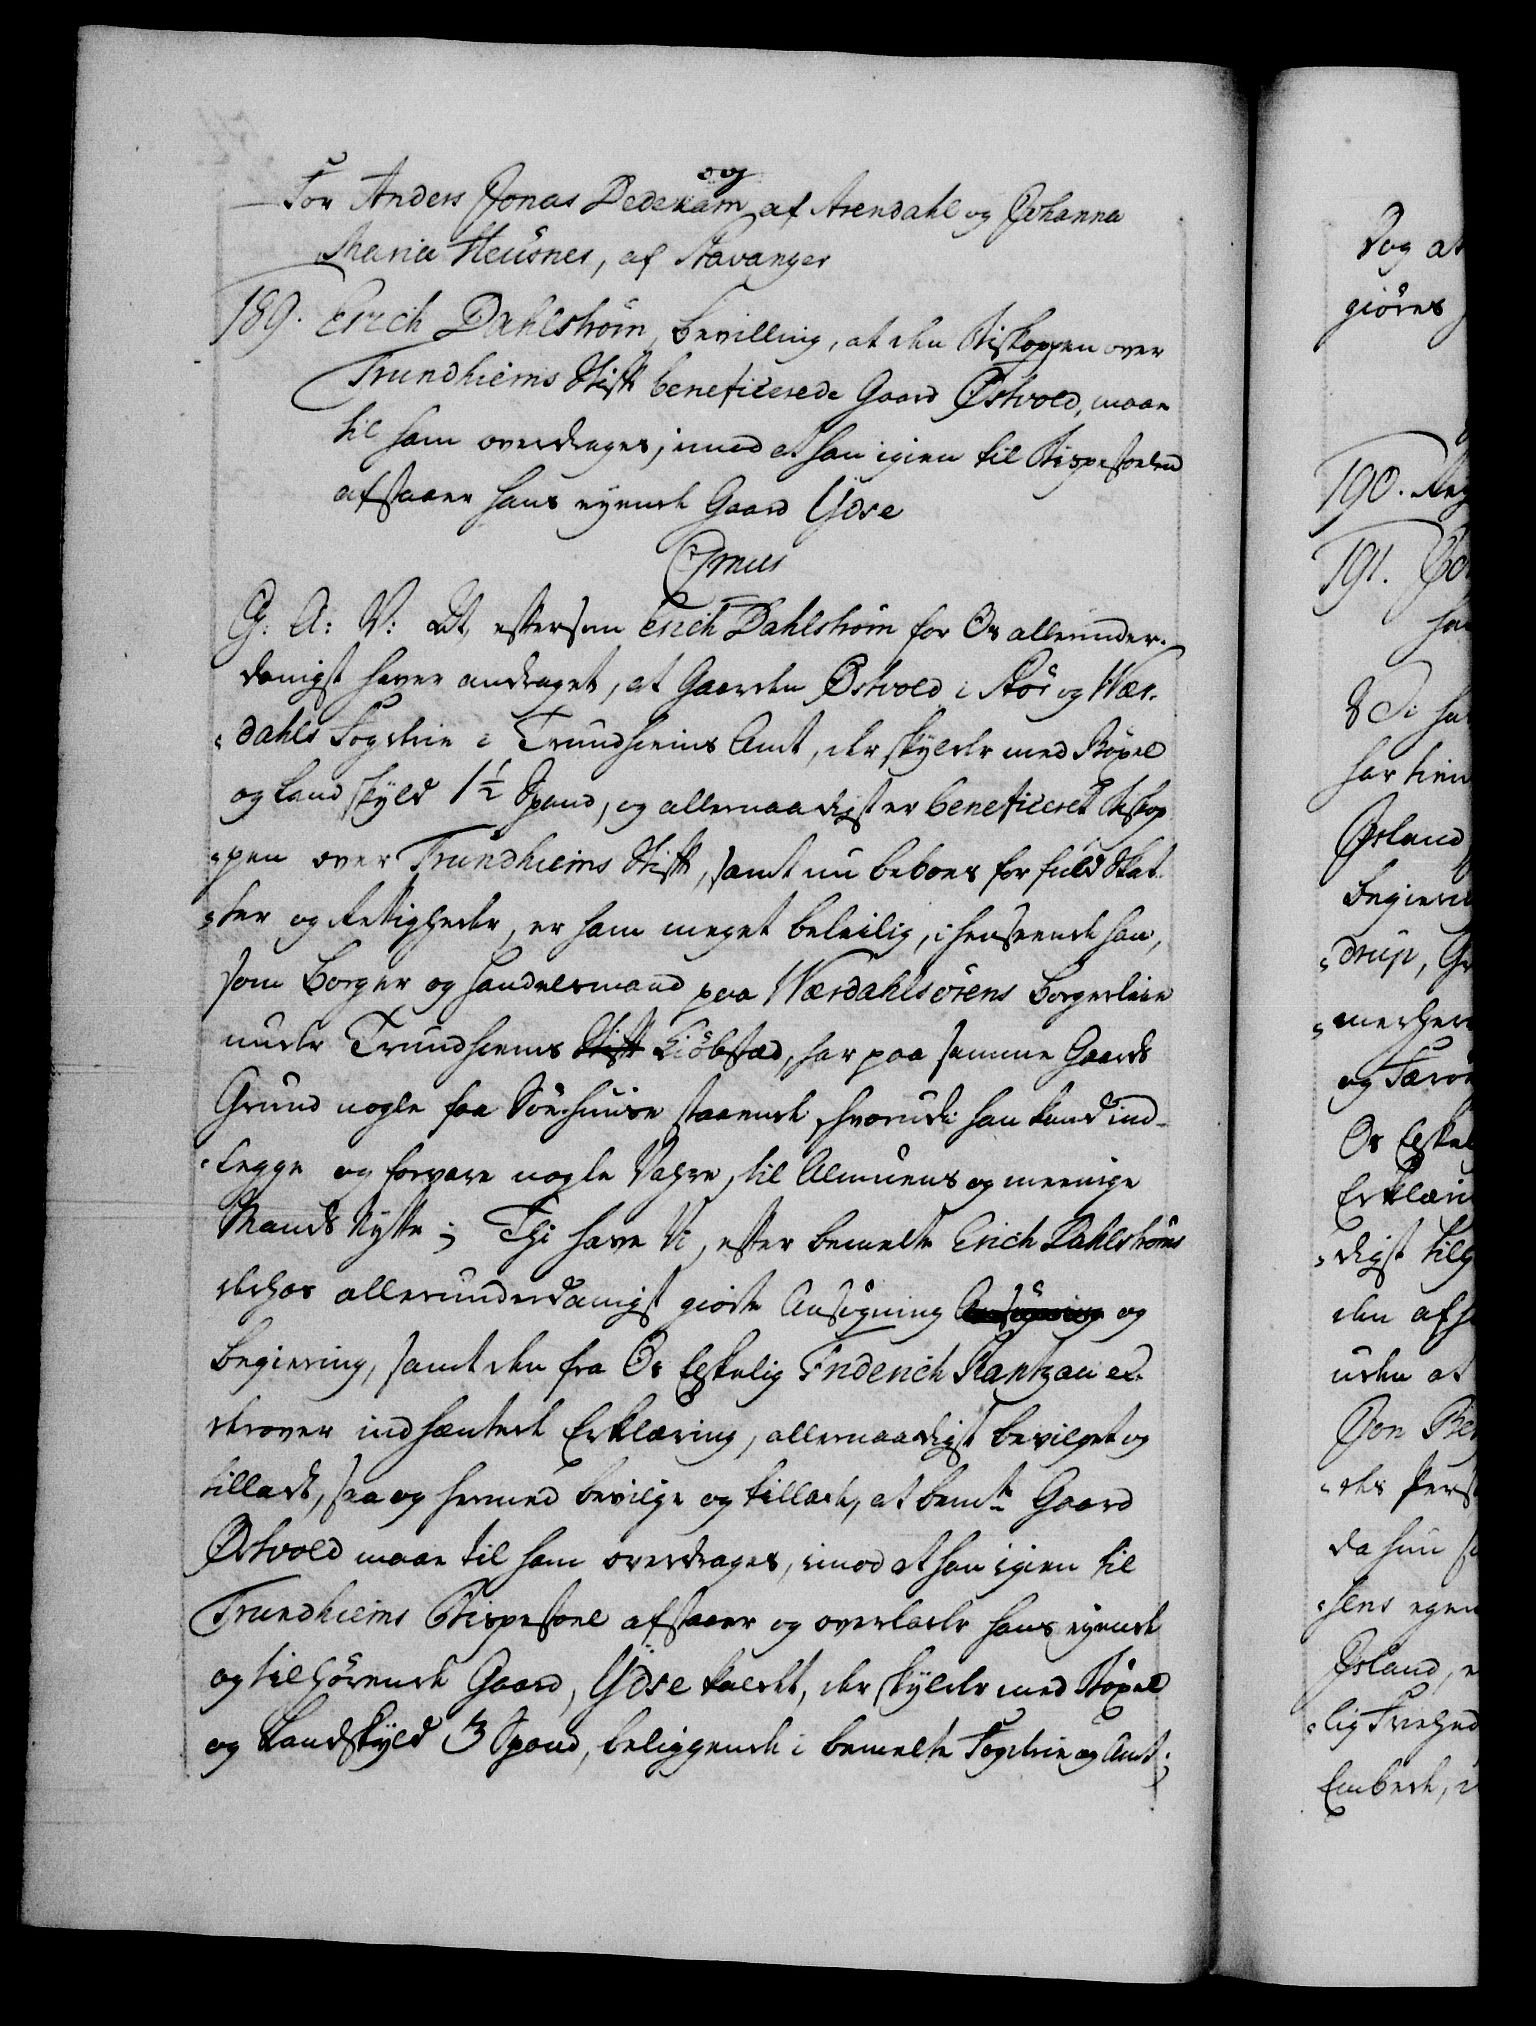 og
For Anders Jonas Dedekam af Arendahl og Johanna
Maria Heusner, af Stavanger
189. Erich Dahlstrøm, bevilling, at den Biskoppen over
Trundhiems Stift beneficerede Gaard Østvold, maae
til ham overdrages, imod at han igien til Bispestoelen
afstaaer hans eyende Gaard Ydse
G. A: V: At, eftersom Erich Dahlstrøm for Os allerunder-
danigst haver andraget, at Gaarden Østvold i Stør og Wær-
dahls Fogderie i Trundhiems Amt, der skylder med Bøxel
og Landskyld 1½ Spand, og allernaadigst er beneficeret Biskop
pen over Trundhiems Stift, samt nu beboes for fuld Skat-
ter og Rettigheder, er ham meget beleilig, i henseende han,
som Borger og Handelsmand paa Wærdahlsørens Borgerleie
under Trundhiems Stift Kiøbstæd, har paa samme Gaards
Grund nogle faa Søehuuse staaende, hvorudi han kand ind-
legge og forvare nogle Vahre, til Almuens og meenige
Mands Nytte; Thi have Vi, efter bemelte Erich Dahlstrøms
derhos allerunderdanigst giorte Ansøgning Ansøgning og
Begiering, samt den fra Os Elskelig Friderich Rantzau er-
derover indhæntede Erklæring, allernaadigst bevilget og
tilladt, saa og hermed bevilge og tillade, at bemte Gaard
Østvold maae til ham overdrages, imod at han igien til
Trundhiems Bispestoel afstaaer og overlader hans eyende
og tilhørende Gaard, Ydse kaldet, der skylder med Bøxel
og Landskyld 3 Spand, beliggende i bemelte Fogderie og Amt;
Dog at
giøres
190.
191.
har tien
Øeland
Begiering
drup, Gr
og Færøe
Os Elskel
Erklæri
digst tilg
den afh
uden at
Jon Bie
da hun
hens egen
Øeland,
Embede, i